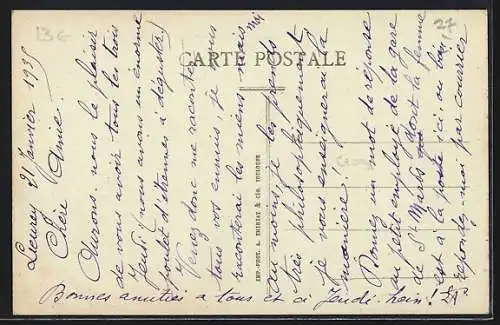 13 €
27
CARTE POSTALE
IMP.-PHOT. A. THIRIAT & CIE, TOULOUSE
Lieurey 21 Janvier 1935
Chère Amie.
Aurons-nous le plaisir
de vous avoir tous les trois
Jeudi? nous avons un énorme
poulet d'étrennes à déguster!
Venez donc me raconter
tous vos ennuis, je vous
raconterai les miens mais, moi
au moins, je les prends
très philosophiquement
je vous enseignerai la
manière!
Donnez un mot de réponse
au petit employé de la gare
de St Mards dont la femme
est à la poste ici ou bien
répondez-moi par courrier
Bonnes amitiés à tous et à Jeudi. hein!